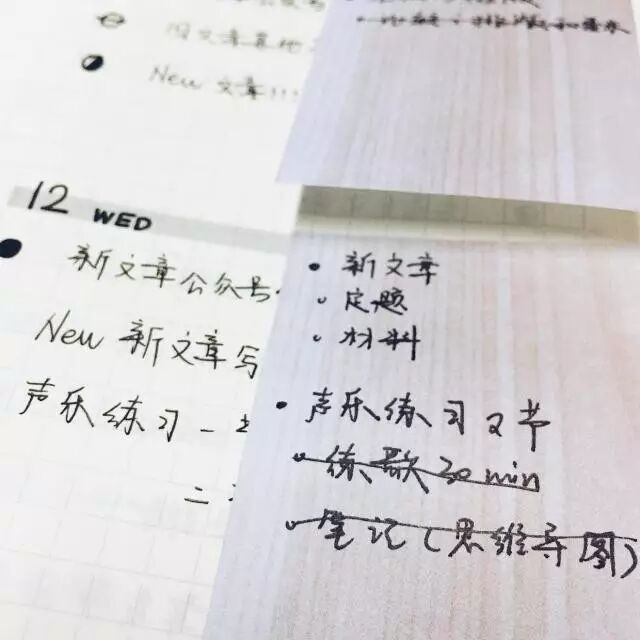 New 文章!!!
12 WED
新文章公众号
New 新文章写
声乐练习一
二
• 新文章
定题
材料
• 声乐练习2节
练歌30min
笔记(思维导图)